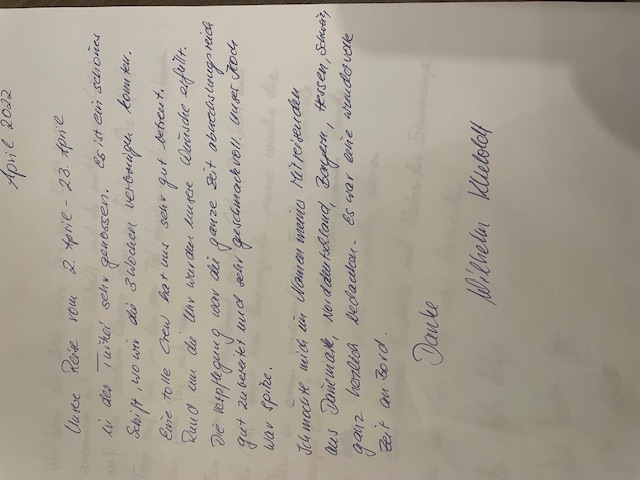 April 2022
Unsere Reise vom 2. April - 23. April
in der Türkei sehr genossen. Es ist ein schönes
Schiff wo wir die 3 Wochen verbringen konnten.
Eine tolle Crew hat uns sehr gut betreut.
Rund um die Uhr wurden unsere Wünsche erfüllt.
Die Verpflegung war die ganze Zeit abwechslungsreich
gut zubereitet und sehr geschmackvoll. Unser Koch
war spitze.
Ich möchte mich im Namen meiner Mitreisenden
aus Dänemark, Norddeutschland, Bayern, Hessen, Schweiz,
ganz herzlich bedanken. Es war eine wundervolle
Zeit an Bord.
Danke
Wilhelm